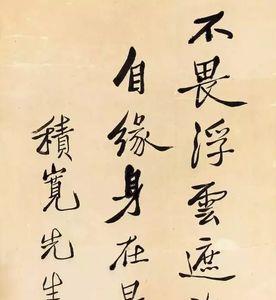 不畏浮雲遮
自缘身在
積寬先生